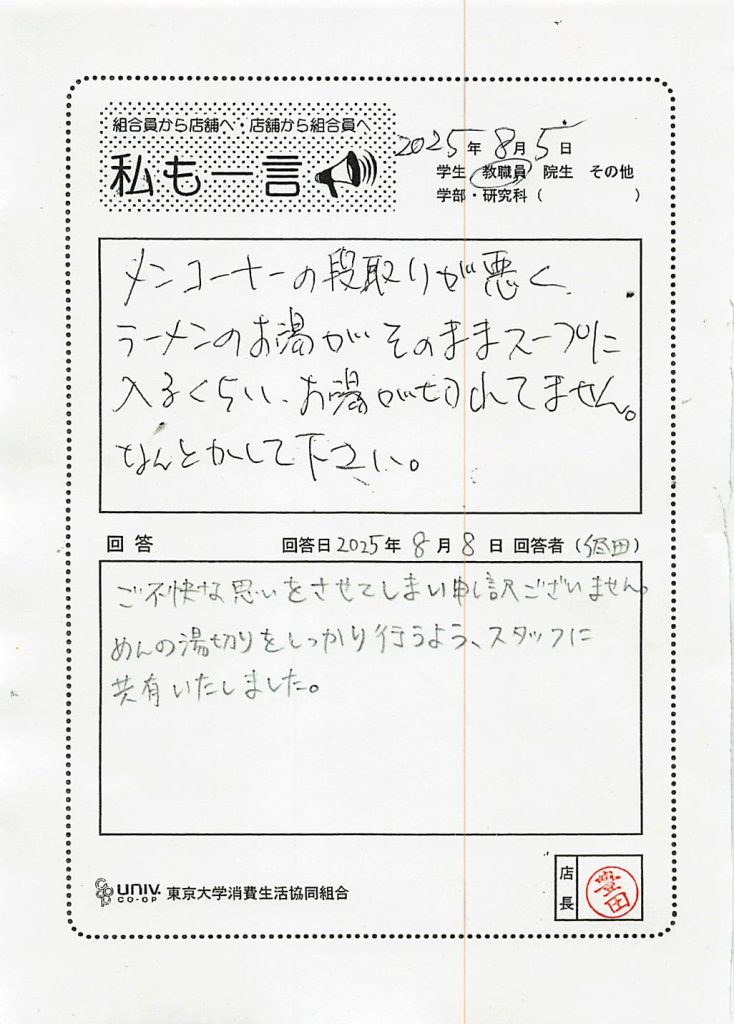 組合員から店舗へ・店舗から組合員へ
私も一言
2025年 8月 5日
学生 教職員 院生 その他
学部・研究科( )
メンコーナーの段取りが悪く、
ラーメンのお湯がそのままスープに
入るくらい、お湯が切れてません。
なんとかして下さい。
回答 回答日 2025年 8月 8日 回答者( 田)
ご不快な思いをさせてしまい申し訳ございません。
めんの湯切りをしっかり行うよう、スタッフに
共有いたしました。
UNIV. CO-OP 東京大学消費生活協同組合
店長 豊田